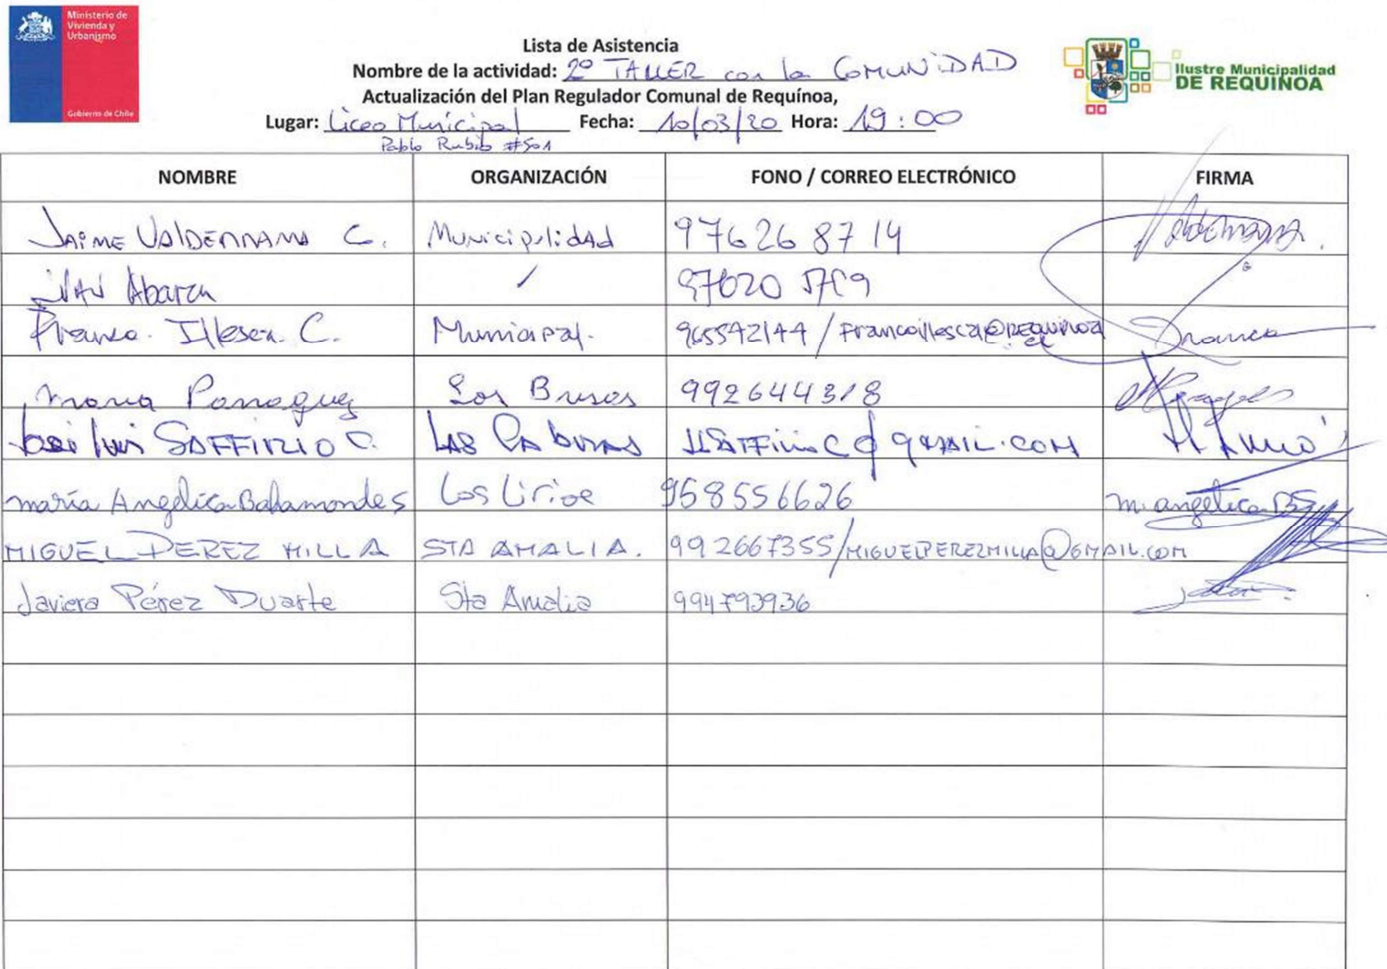 Ministerio de
Vivienda y
Urbanismo
Gobierno de Chile
Lista de Asistencia
Nombre de la actividad: 2º TALLER con la COMUNIDAD
Actualización del Plan Regulador Comunal de Requínoa,
Lugar: Liceo Municipal Fecha: 10/03/20 Hora: 19:00
Pablo Rubio #501
Ilustre Municipalidad
DE REQUINOA
NOMBRE ORGANIZACIÓN FONO / CORREO ELECTRÓNICO FIRMA
JAIME VALDERRAMA C. Municipalidad 97626 8714
IVAN Abarca
Franco. Illesca. C. Municipal. 965542144 / Francoillesca@REQUINOA.cl Franco
Maria 992644318
José Luis SAFFIRIO C. LAS CABURAS
María Angélica Bahamondes Los Lirios 958556626 m. angélica BS
MIGUEL PEREZ MILLA STA AMALIA. 992667355/MIGUELPEREZMILLA@GMAIL.COM
Javiera Pérez Duarte Sta Amalia 994793936